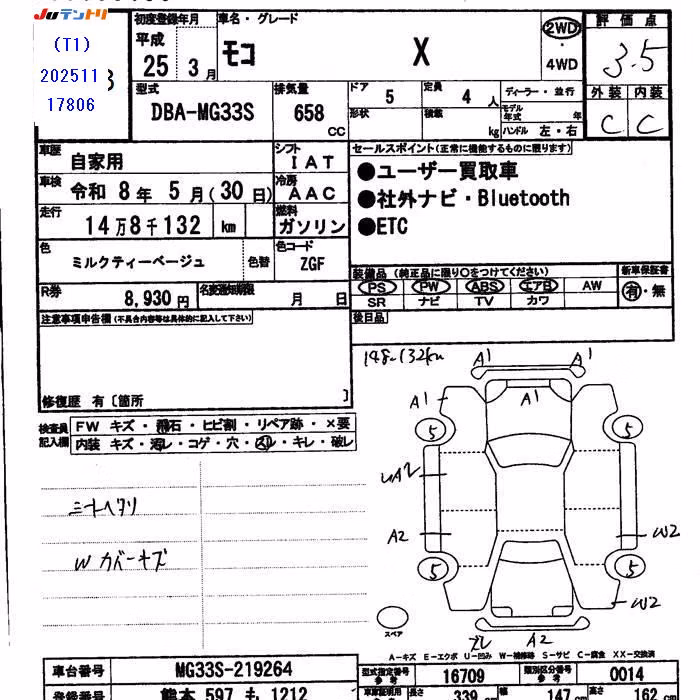 Juテントリ
(T1)
202511
17806
初度登録年月
平成
25 3月
車名・グレード
モコ X
2WD
・
4WD
評価点
3.5
型式
DBA-MG33S
排気量
658
CC
ドア
5
定員
4 人
形状
積載
kg
ディーラー・並行
モデル年式 年
ハンドル 左・右
外装 内装
C C
車歴
自家用
シフト
IAT
車検
令和 8年 5月(30日)
冷房
AAC
走行
14万8千132 km
燃料
ガソリン
色
ミルクティーベージュ
色替
色コード
ZGF
R券
8,930円
名変通知期限
月 日
セールスポイント(正常に機能するものに限ります)
●ユーザー買取車
●社外ナビ・Bluetooth
●ETC
装備品 (純正品に限り○をつけてください)
PS PW ABS エアB AW
SR ナビ TV カワ
新車保証書
有・無
後日品
注意事項申告欄(不具合内容等は具体的に記入して下さい)
修復歴 有〔箇所 〕
検査員記入欄
FW キズ・飛石・ヒビ割・リペア跡・×要
内装 キズ・汚レ・コゲ・穴・スレ・キレ・破レ
シートヘタリ
W カバーキズ
148-132km
A1 A1
A1 A1
5 5
UA2
A2 W2
5 5
W2
スレ A2
スペア
A-キズ E-エクボ U-凹み W-補修跡 S-サビ C-腐食 XX-交換済
車台番号
MG33S-219264
型式指定番号 参考
16709
類別区分番号 参考
0014
登録番号
熊本 597 も 1212
長さ 339 cm 幅 147 cm 高さ 162 cm